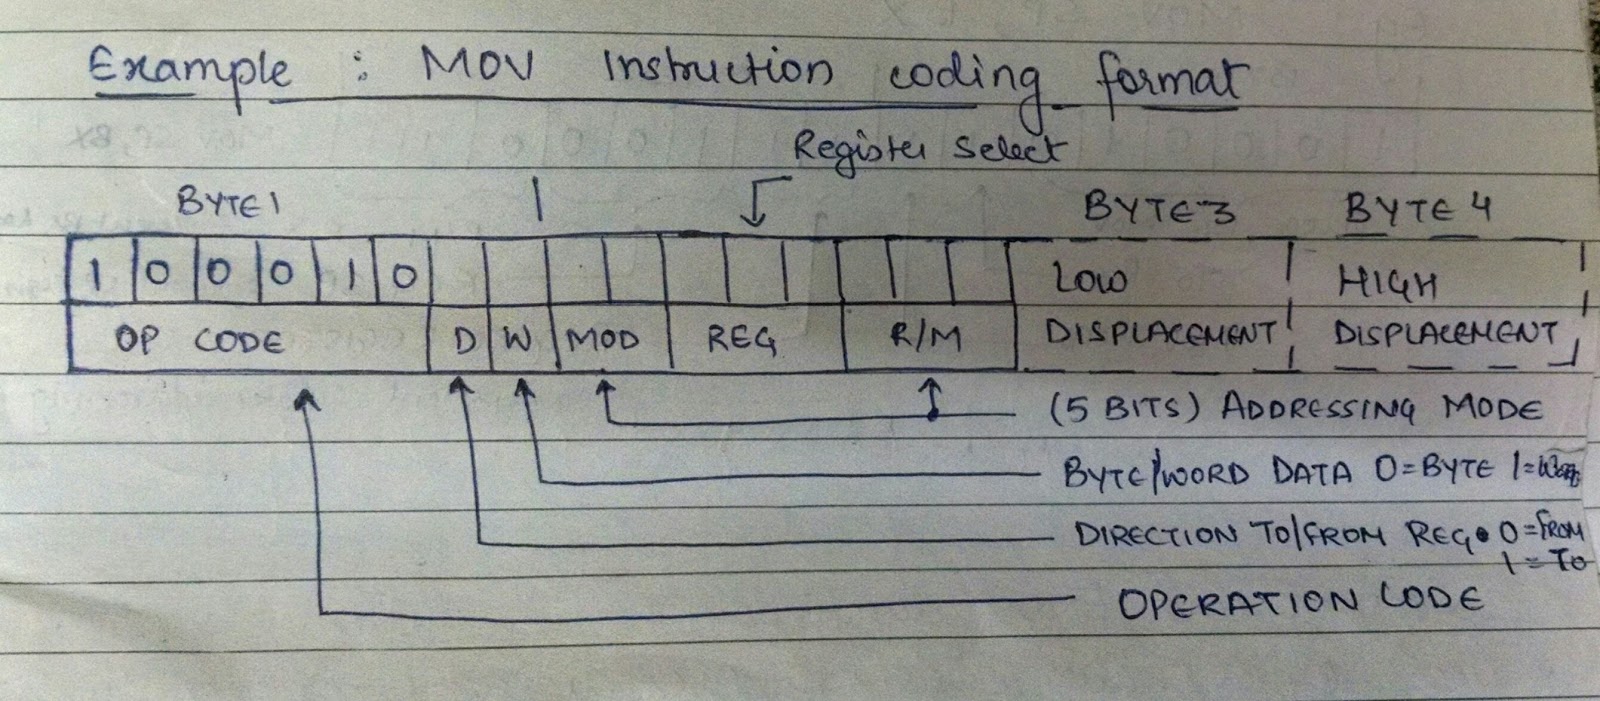 Example : MOV Instruction coding format
Register Select
BYTE 1 BYTE 3 BYTE 4
1 0 0 0 1 0 LOW HIGH
OP CODE D W MOD REG R/M DISPLACEMENT DISPLACEMENT
(5 BITS) ADDRESSING MODE
BYTE/WORD DATA 0=BYTE 1=
DIRECTION TO/FROM REG. 0=FROM
1=TO
OPERATION CODE